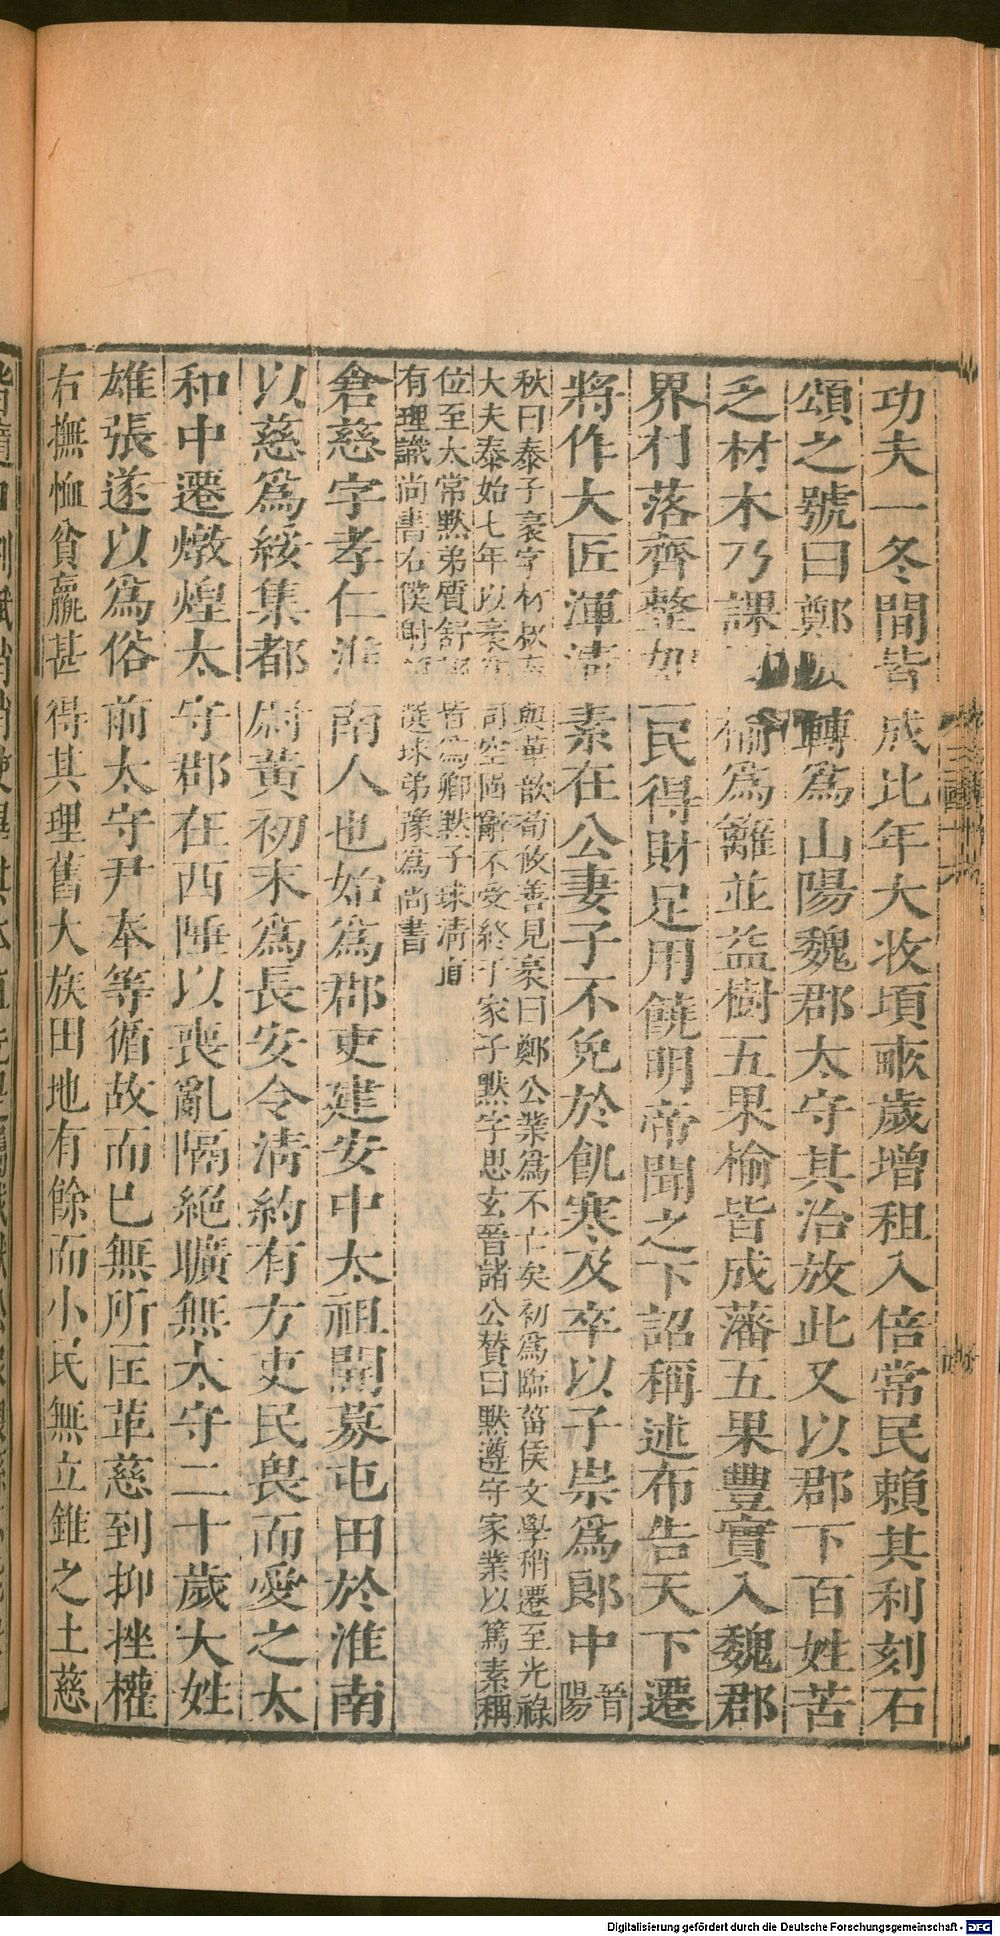 功夫一冬間皆成比年大收頃畝歲增租入倍常民賴其利刻石
頌之號曰鄭陂轉爲山陽魏郡太守其治放此又以郡下百姓苦
乏材木乃課樹榆爲籬並益樹五果榆皆成藩五果豐實入魏郡
界村落齊整如一民得財足用饒明帝聞之下詔稱述布告天下遷
將作大匠渾清素在公妻子不免於飢寒及卒以子崇爲郎中
晉陽
秋曰泰子袤字林叔泰與華歆荀攸善見袤曰鄭公業爲不亡矣初爲臨菑侯文學稍遷至光祿
大夫泰始七年以袤爲司空固辭不受終于家子默字思玄晉諸公贊曰默遵守家業以篤素稱
位至太常默弟質舒詡皆爲卿默子球清直
有理識尚書右僕射領選球弟豫爲尚書
倉慈字孝仁淮南人也始爲郡吏建安中太祖開募屯田於淮南
以慈爲綏集都尉黃初末爲長安令清約有方吏民畏而愛之太
和中遷燉煌太守郡在西陲以喪亂隔絕曠無太守二十歲大姓
雄張遂以爲俗前太守尹奉等循故而已無所匡革慈到抑挫權
右撫恤貧羸甚得其理舊大族田地有餘而小民無立錐之土慈
Digitalisierung gefördert durch die Deutsche Forschungsgemeinschaft - DFG